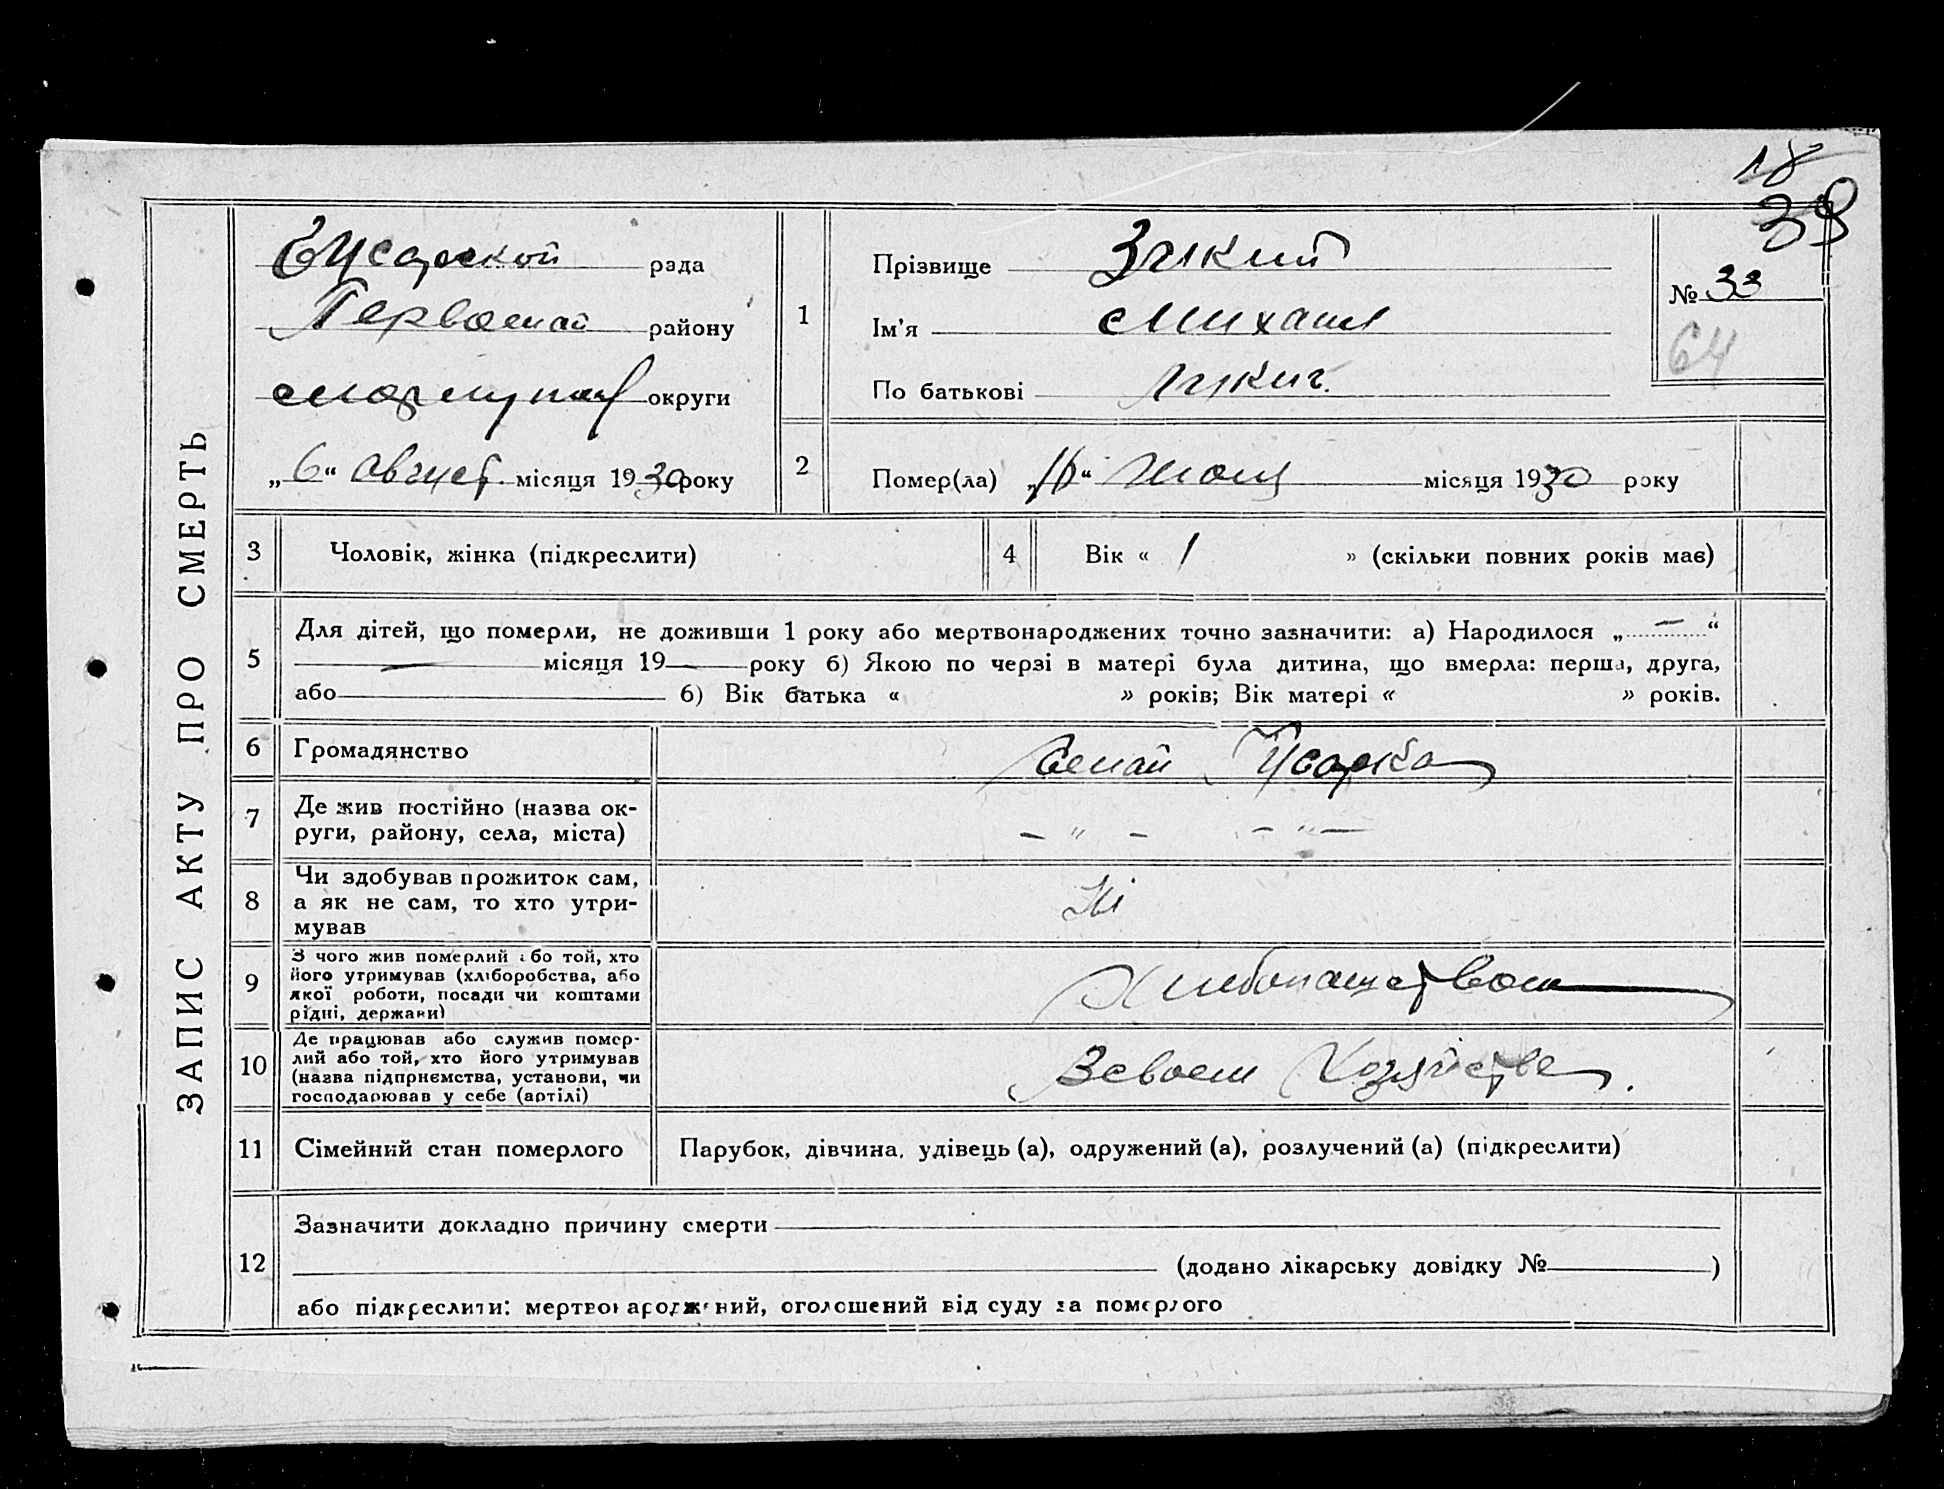 18
39
ЗАПИС АКТУ ПРО СМЕРТЬ
рада
району
округи
„6“ август. місяця 1930 року
1
Прізвище
Ім'я Михаил
По батькові Лукич.
№ 33
64
2
Помер(ла) місяця 1930 року
3 Чоловік, жінка (підкреслити)
4 Вік « 1 » (скільки повних років має)
5
Для дітей, що померли, не доживши 1 року або мертвонароджених точно зазначити: а) Народилося „ — “
— місяця 19 року б) Якою по черзі в матері була дитина, що вмерла: перша, друга,
або б) Вік батька « » років; Вік матері « » років.
6 Громадянство
7
Де жив постійно (назва ок-
руги, району, села, міста) – " – – " –
8
Чи здобував прожиток сам,
а як не сам, то хто утри-
мував Ні
9
З чого жив померлий або той, хто
його утримував (хліборобства, або
якої роботи, посади чи коштами
рідні, держави)
10
Де працював або служив помер-
лий або той, хто його утримував
(назва підприємства, установи, чи
господарював у себе (артілі) Всвоем Хозяйстве.
11 Сімейний стан померлого Парубок, дівчина, удівець (а), одружений (а), розлучений (а) (підкреслити)
12
Зазначити докладно причину смерти
(додано лікарську довідку № )
або підкреслити: мертвонароджений, оголошений від суду за померлого